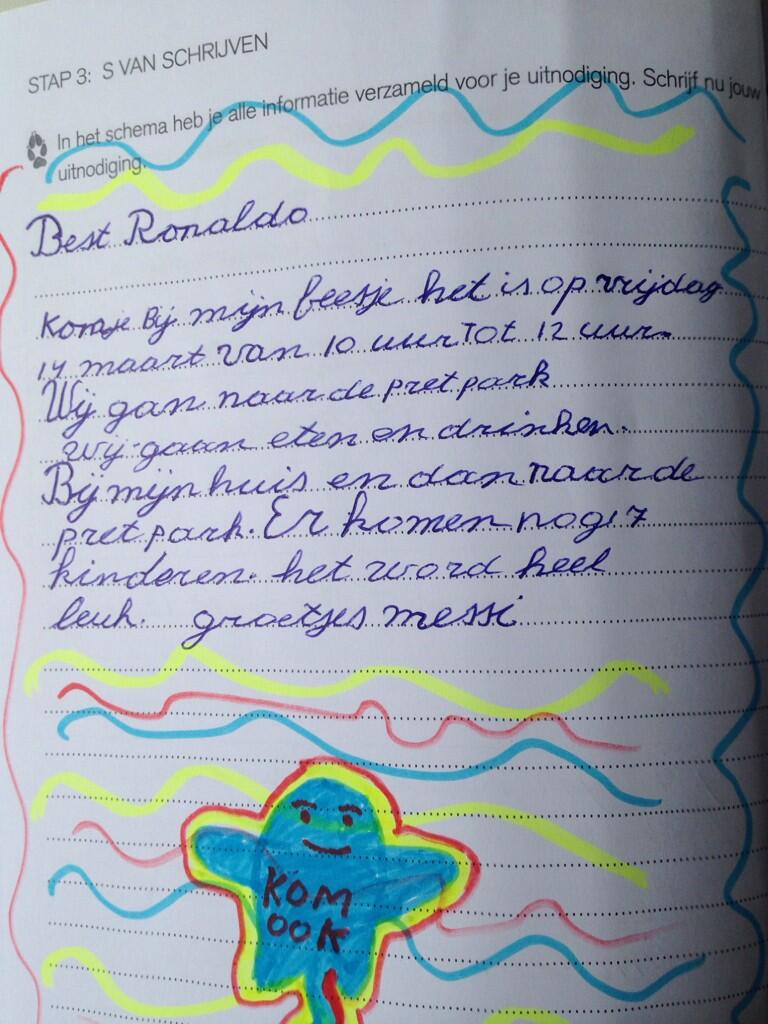 STAP 3: S VAN SCHRIJVEN
In het schema heb je alle informatie verzameld voor je uitnodiging. Schrijf nu jouw
uitnodiging.
Best Ronaldo
Kom je Bij mijn feesje het is op vrijdag
14 maart van 10 uur Tot 12 uur.
Wij gan naar de pretpark
wij gaan eten en drinken.
Bij mijn huis en dan naar de
pretpark. Er komen nog 17
kinderen. het word heel
leuk. groetjes messi
KOM
OOK